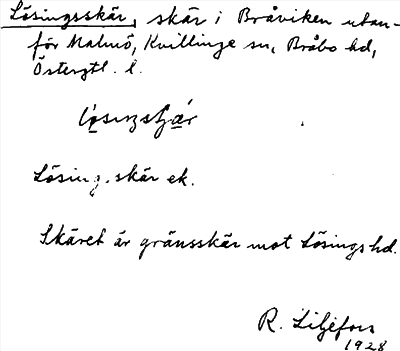 Lösingsskär, skär i Bråviken utan-
för Malmö, Kvillinge sn, Bråbo hd,
Östergtl. l.
Lösing.skär ek.
Skäret är gränsskär mot Lösings hd.
R. Liljefors
1928